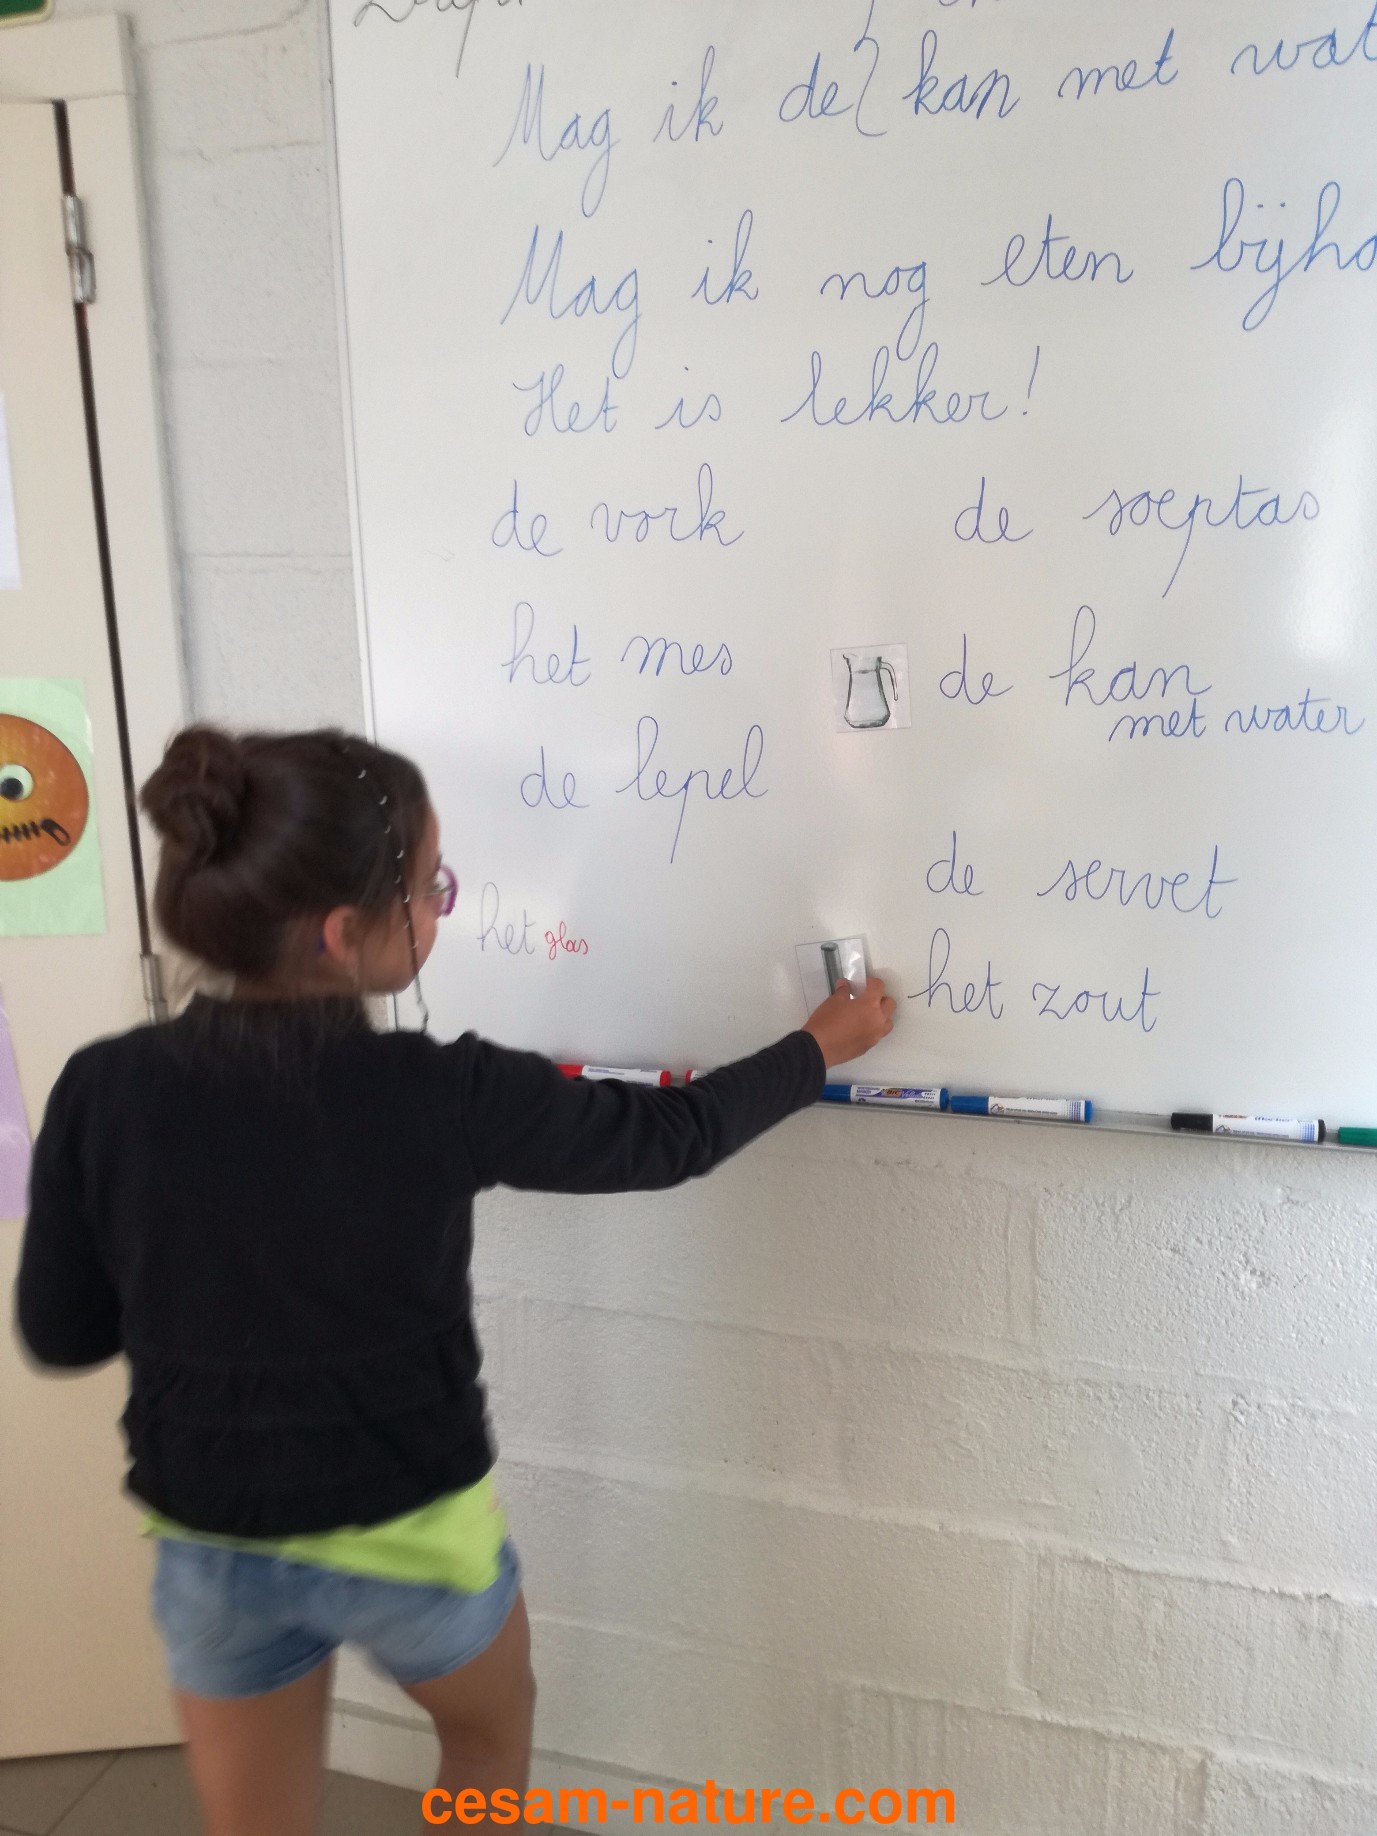 Mag ik de kan met wat
Mag ik nog eten bijho
Het is lekker!
de vork de soeptas
het mes de kan
met water
de lepel
de servet
het glas
het zout
cesam-nature.com